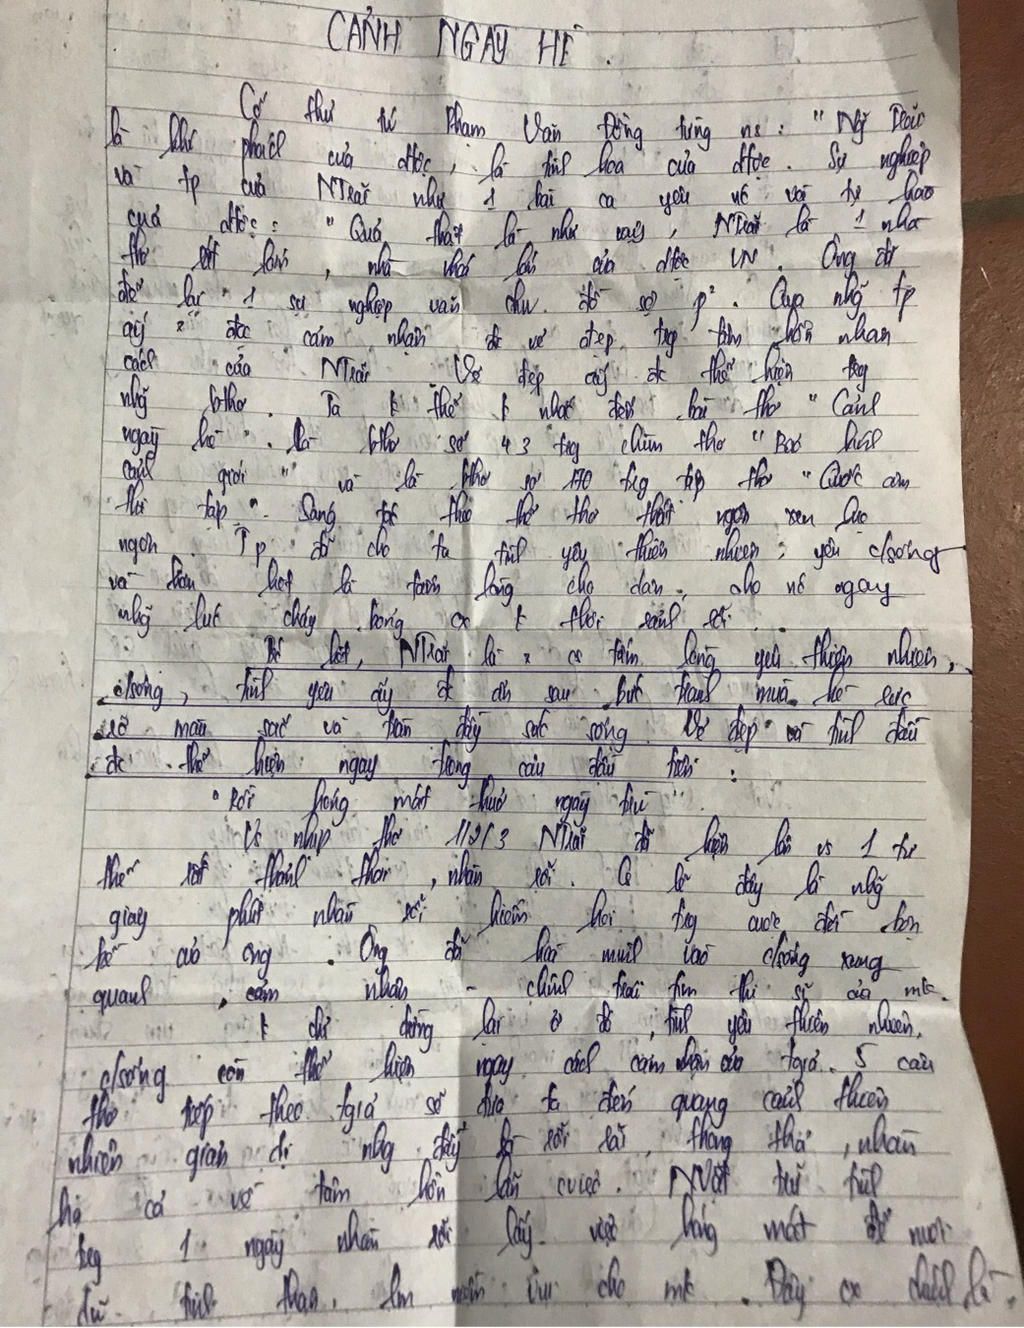 CẢNH NGÀY HÈ.
Cố thủ tú Phạm Văn Đồng từng ns: "Ng~ Trãi
là khí phách của dtộc, là tinh hoa của dtộc. Sự nghiệp
và tp của NTrãi như 1 bài ca yêu nc và tự hào
của dtộc: "Quả thật là như vậy, NTrãi là 1 nhà
thơ lớn, nhà văn của dtộc VN. Ông đã
để lại 1 sự nghiệp văn chg đồ sộ p². Qua nhg~ tp
ấy đọc cảm nhận đc vẻ đẹp trg tâm hồn nhân
cách của NTrãi. Vẻ đẹp ấy đc thể hiện trg
nhg~ bthơ. Ta k thể k nhắc đến bài thơ "Cảnh
ngày hè". Là bthơ số 43 trg chùm thơ "Bảo kính
cảnh giới" và là bthơ số 170 trg tập thơ "Quốc âm
thi tập". Sáng tác theo thể thơ thất ngôn xen lục
ngôn. Tp đã cho ta tình yêu thiên nhiên, yêu c/sống
và hơn hết là tấm lòng cho dân, cho nc ngay
nhg~ lúc cháy bỏng cx k thôi
NTrãi là có tấm lòng yêu thiên nhiên,
c/sống, tình yêu ấy đc ẩn sau bức tranh mùa hè rực
rỡ màu sắc và tràn đầy sức sống. Vẻ đẹp tình đầu
đc thể hiện ngay trong câu đầu tiên:
"Rồi hóng mát thuở ngày trường".
Vs nhịp thơ 1/2/3 NTrãi đã hiện lên vs 1 tư
thế rất thảnh thơi, nhàn rỗi. Có lẽ đây là nhg~
giây phút nhàn rỗi hiếm hoi trg cuộc đời bôn
ba của ông. Ông đã hoà mình vào c/sống xung
quanh, cảm nhận = chính trái tim thi sĩ của mk.
K chỉ dừng lại ở đó, tình yêu thiên nhiên,
c/sống còn thể hiện ngay cách cảm nhận của tgiả. 5 câu
thơ tiếp theo tgiả sẽ đưa ta đến quang cảnh thiên
nhiên giản dị nhg đầy thong thả, nhàn
hạ cả về tâm hồn lẫn cviệc. NVật trữ tình
trg 1 ngày nhàn rỗi lấy việc hóng mát để nuôi
tinh thần, làm niềm vui cho mk. Đây cx chính là